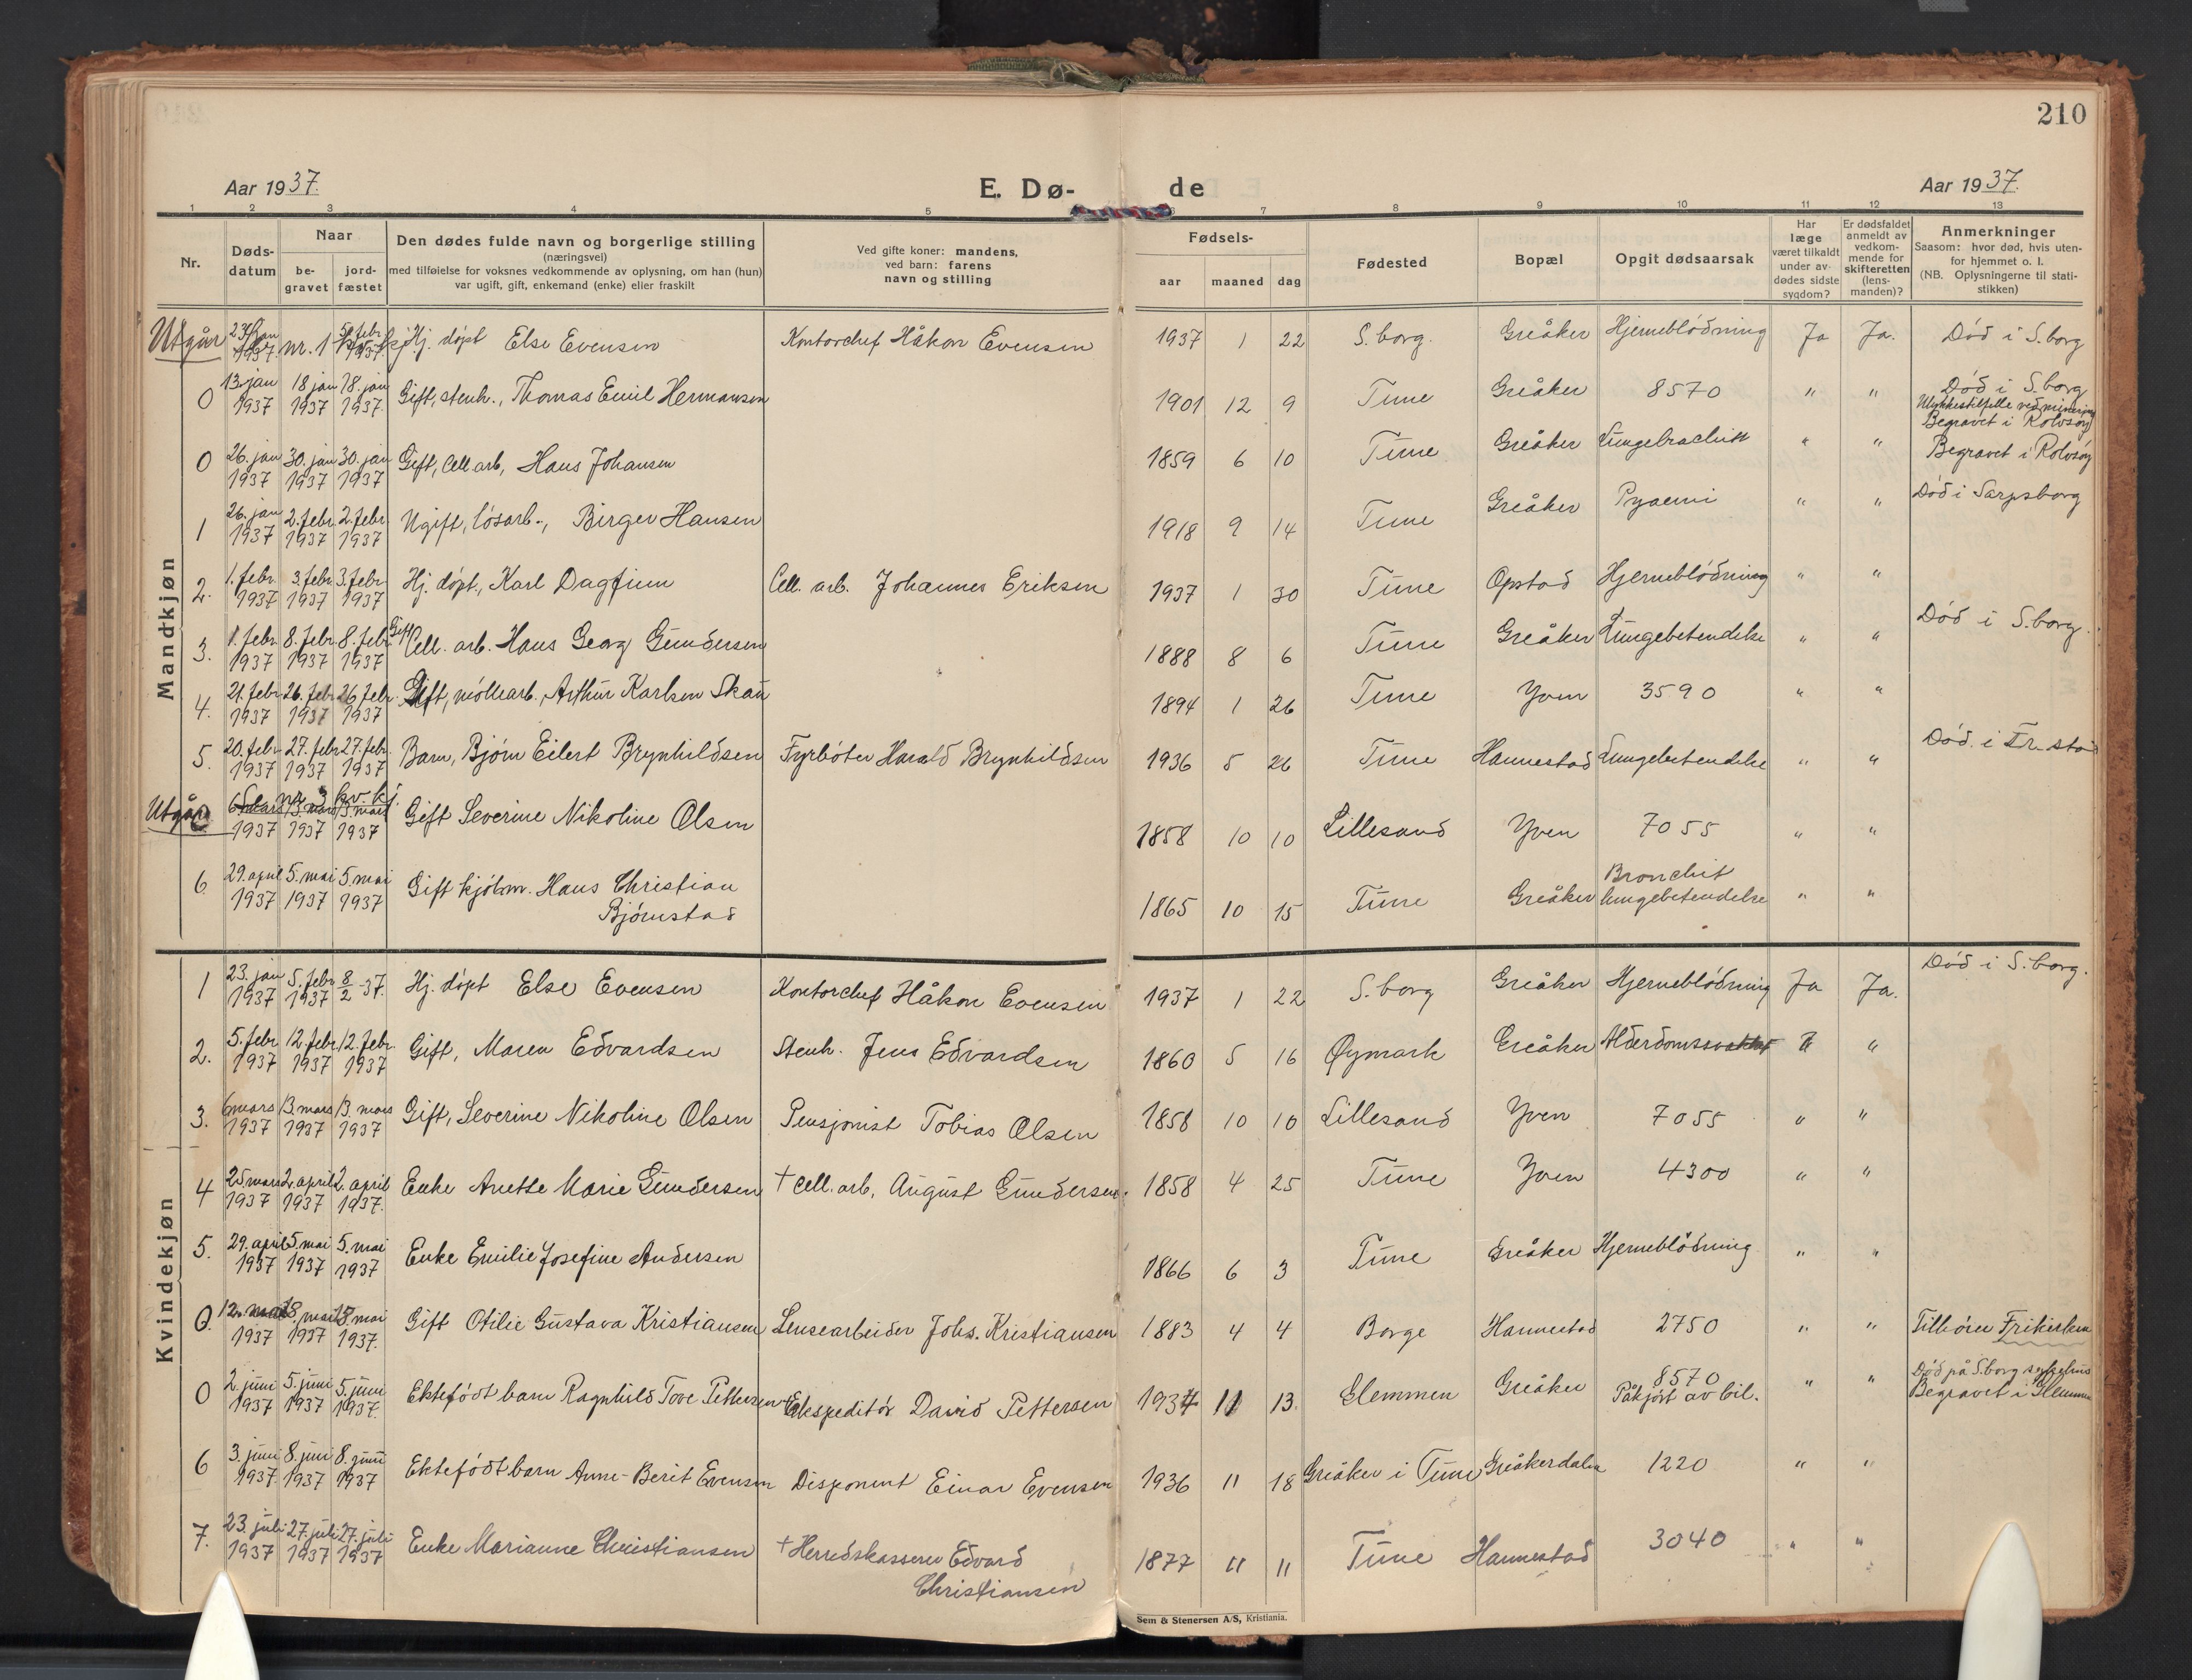 210
Aar 1937.
E. Dø-
de
Aar 1937.
1 2 3 4 5 6 7 8 9 10 11 12 13
Nr.
Døds-
datum
Naar
be-
gravet
jord-
fæstet
Den dødes fulde navn og borgerlige stilling
(næringsvei)
med tilføielse for voksnes vedkommende av oplysning, om han (hun)
var ugift, gift, enkemand (enke) eller fraskilt
Ved gifte koner: mandens,
ved barn: farens
navn og stilling
Fødsels-
aar maaned dag
Fødested
Bopæl
Opgit dødsaarsak
Har
læge
været tilkaldt
under av-
dødes sidste
sygdom?
Er dødsfaldet
anmeldt av
vedkom-
mende for
skifteretten
(lens-
manden)?
Anmerkninger
Saasom: hvor død, hvis uten-
for hjemmet o. l.
(NB. Oplysningerne til stati-
stikken)
Mandkjøn
Utgår nr. 1 Hj. døpt Else Evensen Kontorchef Håkon Evensen 1937 1 22 S.borg. Greåker Hjerneblødning Ja Ja. Død i S.borg
0 13. jan 1937 18 jan 1937 18. jan 1937. Gift, stenh., Thomas Emil Hermansen 1901 12 9 Tune Greåker 8570 " " Død i S.borg
Ulykkestilfelle ved minering
Begravet i Rolvsøy
0 26. jan 1937 30. jan 1937 30. jan 1937 Gift, cell arb, Hans Johansen 1859 6 10 Tune Greåker " " Begravet i Rolvsøy
1 26. jan 1937 2. febr. 1937 2. febr. 1937 Ugift, løsarb., Birger Hansen 1918 9 14 Tune Greåker Pyaemi " " Død i Sarpsborg
2. 1. febr. 1937 3. febr 1937 3. febr 1937 Hj. døpt, Karl Dagfinn Cell. arb. Johannes Eriksen 1937 1 30 Tune Opstad Hjerneblødning " "
3. 1. febr 1937 8. febr 1937 8. febr 1937 Gift Cell. arb. Hans Georg Gundersen 1888 8 6 Tune Greåker Lungebetendelse " " Død i S.borg.
4. 21. febr 1937 26. febr 1937 26 febr. 1937 Gift, møllearb., Arthur Karlsen Skau 1894 1 26 Tune Yven 3590 " "
5. 20. febr. 1937 27. febr 1937 27. febr. 1937 Barn, Bjørn Eilert Brynhildsen Fyrbøter Harald Brynhildsen 1936 5 26 Tune Hannestad Lungebetendelse " " Død i Fr.stad
Utgår nr 3 kv. kj. 6. mars 1937 13. mars 1937 13. mars 1937 Gift Severine Nikoline Olsen 1858 10 10 Lillesand Yven 7055 " "
6. 29. april 1937 5. mai 1937 5. mai 1937 Gift kjølm. Hans Christian
Bjørnstad 1865 10 15 Tune Greåker Bronchit
lungebetendelse " "
Kvindekjøn
1 23. jan 1937 5. febr 1937 8/2-37. Hj. døpt Else Evensen Kontorchef Håkon Evensen 1937 1 22 S.borg Greåker Hjerneblødning Ja Ja. Død i S.borg.
2. 5. febr 1937 12. febr. 1937 12. febr. 1937 Gift, Maren Edvardsen Stenh. Jens Edvardsen 1860 5 16 Øymark Greåker " "
3. 6 mars 1937 13. mars 1937 13. mars 1937 Gift, Severine Nikoline Olsen Pensjonist Tobias Olsen 1858 10 10 Lillesand Yven 7055 " "
4 25 mars 1937 2. april 1937 2. april 1937. Enke Anette Marie Gundersen † cell. arb, August Gundersen. 1858 4 25 Tune Yven 4300 " "
5. 29. april 1937 5. mai 1937 5. mai 1937 Enke Emilie Josefine Andersen 1866 6 3 Tune Greåker Hjerneblødning " "
0. 12. mai 1937 18. mai 1937 18 mai 1937. Gift Otilie Gustava Kristiansen Lensearbeider Johs. Kristiansen 1883 4 4 Borge Hannestad 2750 " " Tilhører Frikirken
0 2. juni 1937 5. juni 1937 5. juni 1937. Ektefødt barn Ragnhild Tove Pettersen Ekspeditør David Pettersen 1934 11 13. Glemmen Greåker 8570
Påkjørt av bil. " " Død på S.borg sykehus
Begravet i Glemmen
6 3. juni 1937. 8. juni 1937 8. juni 1937 Ektefødt barn Anne-Berit Evensen Disponent Einar Evensen 1936 11 18 Greåker i Tune Greåkerdalen 1220 " "
7. 23. juli 1937 27. juli 1937 27. juli 1937 Enke Marianne Christiansen † Herredskasserer Edvard
Christiansen 1877 11 11 Tune Hannestad 3040 " "
Sem & Stenersen A/S, Kristiania.